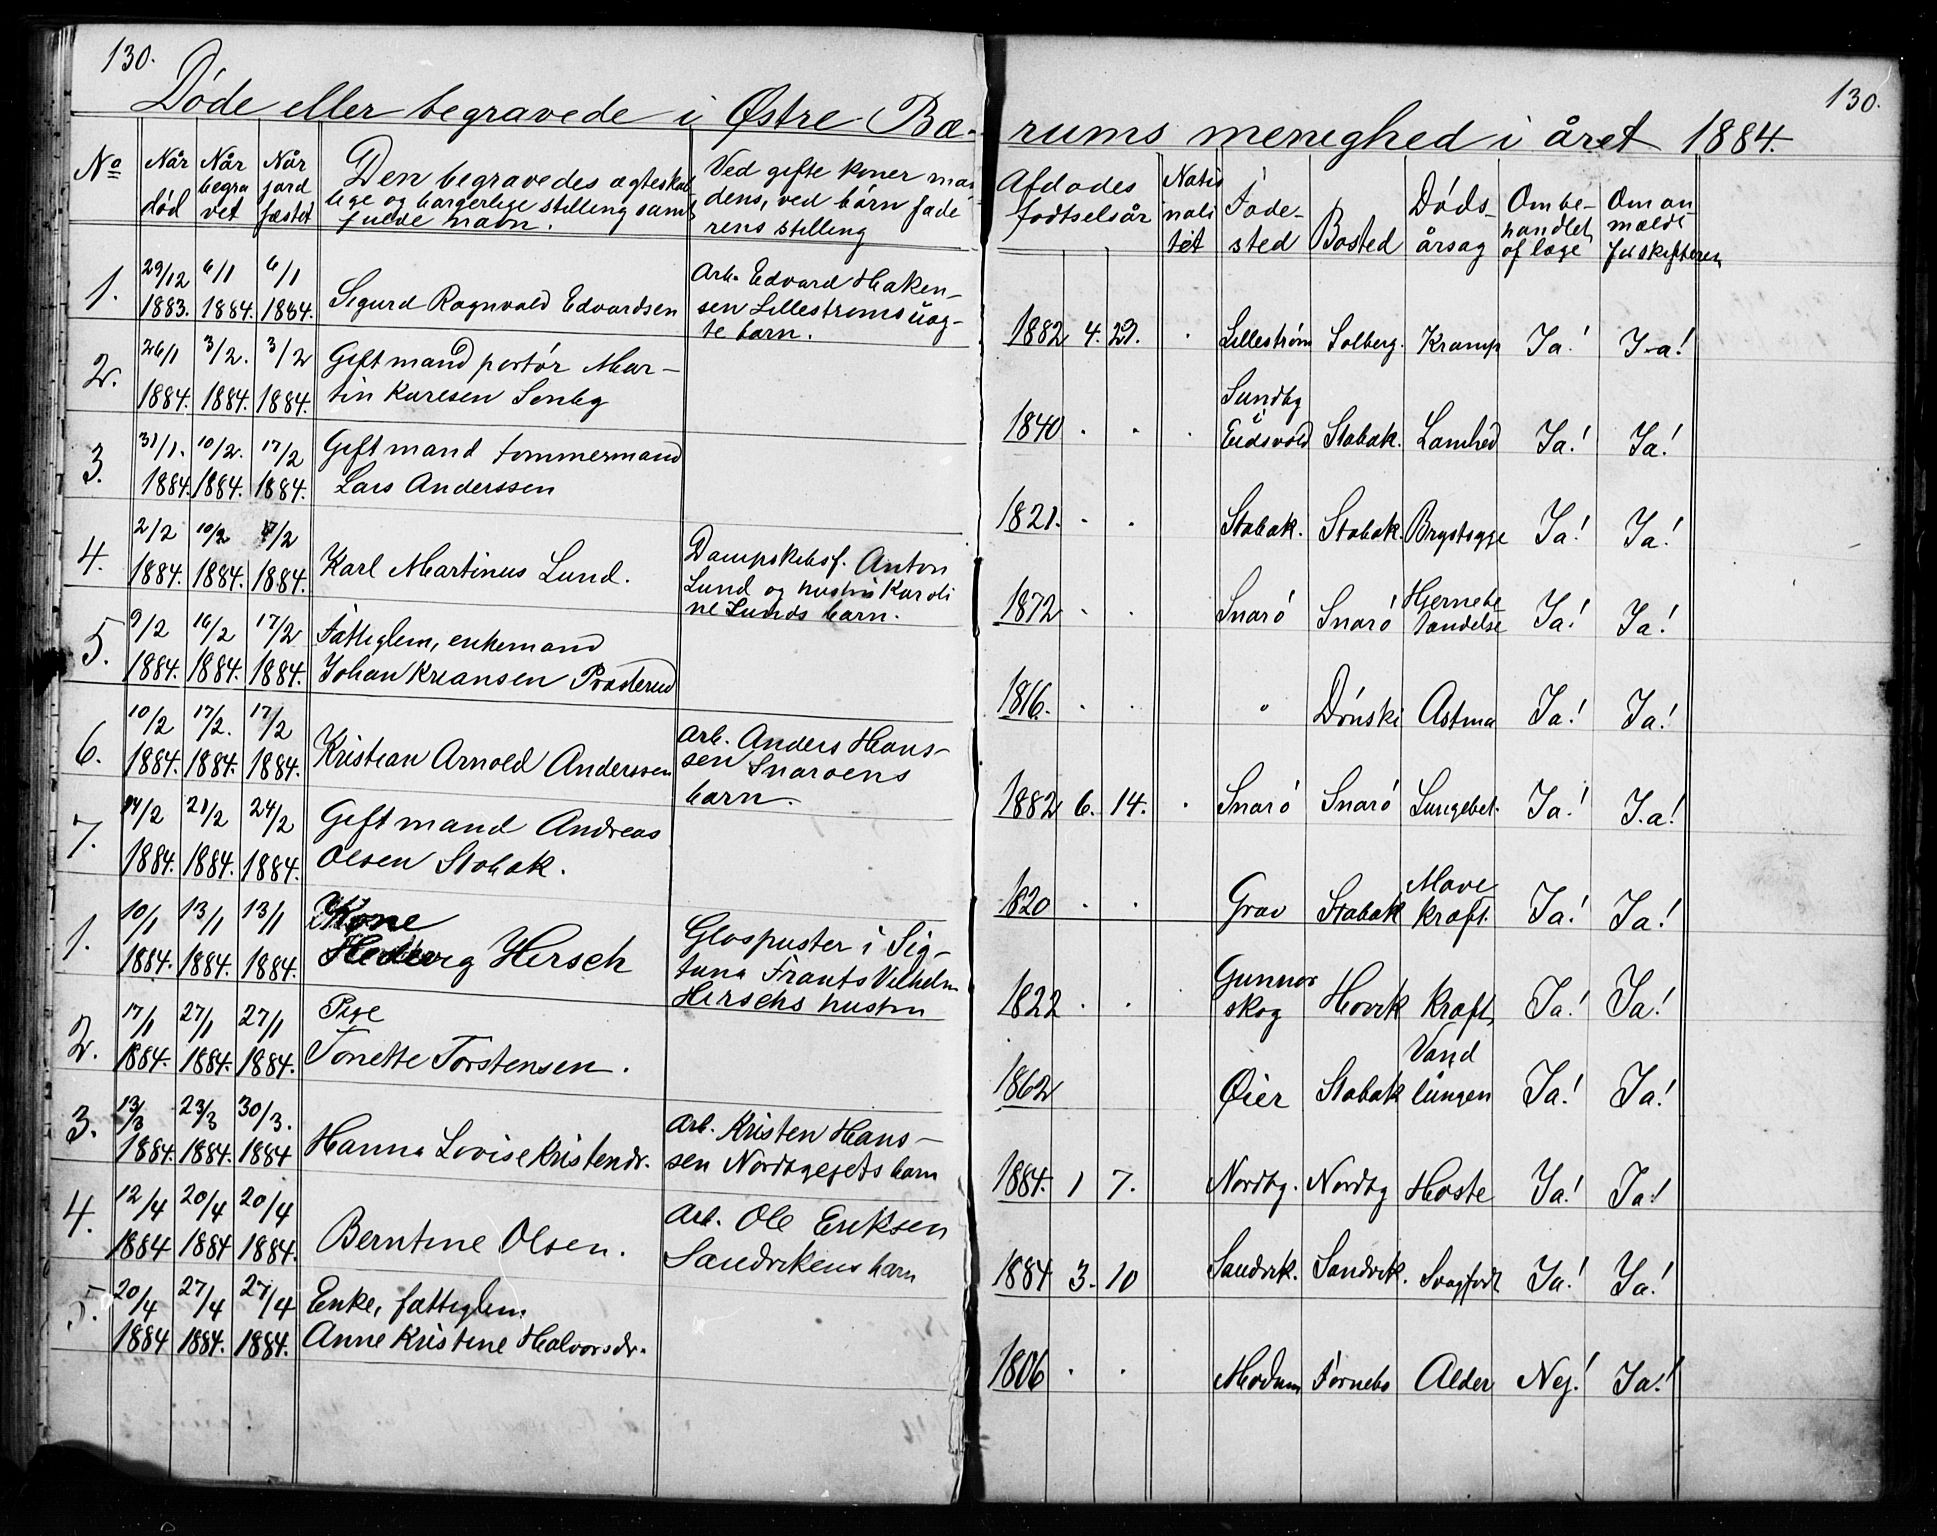 130.
130.
Døde eller begravede i Østre Bæ-
rums menighed i året 1884.
No
Når død
Når begra vet
Når jord fæstet
Den begravedes ægteskab
lige og borgerlige stilling samt
fulde navn.
Ved gifte koner man
dens, ved børn fade
rens stilling
Afdødes fødtselsår
Natio nali tet
Føde- sted
Bosted
Døds- årsag
Om be- handlet af læge
Om an mældt
1. 29/12 1883. 6/1 1884. 6/1 1884.
Sigurd Ragnvald Edvardsen
Arb. Edvard Haken-
sen Lillestrøms uæg-
te barn.
1882 4. 29. Lillestrøm Solberg. Krampe Ja! Ja!
2. 26/1 1884. 3/2. 1884. 3/2 1884.
Gift mand portør Mar-
tin Karlsen Senby
1840 . . . Sundby i Eidsvold Stabæk. Lamhed Ja! Ja!
3. 31/1. 1884. 10/2. 1884. 17/2 1884.
Gift mand tømmermand
Lars Anderssen
1821. . . Stabæk. Stabæk. Brystsyge Ja! Ja!
4. 2/2 1884. 10/2 1884. 17/2 1884.
Karl Martinus Lund.
Dampskibsf. Anton
Lund og hustru Karoli
ne Lunds barn.
1872 . . Snarø Snarø Hjernebe tændelse Ja! Ja!
5. 9/2 1884. 16/2 1884. 17/2 1884.
Fattiglem, enkemand
Johan Kriansen Præsterud
1816. . . " Dønski Astma Ja! Ja!
6. 10/2 1884. 17/2. 1884. 17/2 1884.
Kristian Arnold Anderssen
Arb. Anders Hans-
sen Snarøens
barn.
1882 6. 14. . Snarø Snarø Lungebet. Ja! Ja!
7. 14/2 1884. 21/2 1884. 24/2 1884.
Gift mand Andreas
Olsen Stabæk.
1820 . . Grav Stabæk Mave kræft. Ja! Ja!
1. 10/1 1884. 13/1 1884. 13/1 1884.
Kone
Hedevig Hirsch
Glaspuster i Sig-
tuna Frants Vilhelm
Hirschs hustru
1822 . . . Gunnar skog Høvik Kræft, Ja! Ja!
2. 17/1 1884. 27/1 1884. 27/1 1884.
Pige
Tonette Torstensen.
1862 Øier Stabæk Vand i lungen Ja! Ja!
3. 13/3 1884. 23/3 1884. 30/3. 1884
Hanna Lovise Kristendr.
Arb. Kristen Hans-
sen Nordbyejets barn
1884. 1 7. Nordby. Nordby Hoste Ja! Ja!
4. 12/4 1884 20/4 1884 20/4 1884.
Berntine Olsen.
Arb. Ole Eriksen
Sandvikens barn
1884 3. 10 Sandvik. Sandvik. Svagfødt Ja! Ja!
5. 20/4 1884 27/4 1884. 27/4 1884.
Enke, fattiglem
Anne Kristine Halvorsdr.
1806 . . Modum Fornebo Alder Nej! Ja!